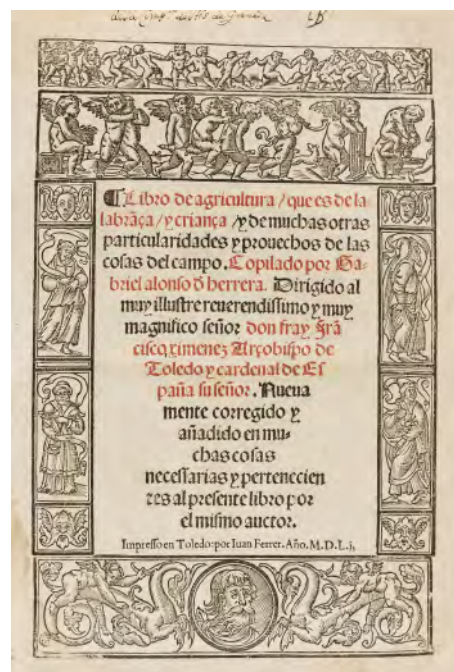 ¶Libro de agricultura / que es de la
labrãça / y criança / y de muchas otras
particularidades y prouechos de las
cosas del campo. Copilado por Ga-
briel alonso d̃ herrera. Dirigido al
muy illustre reuerendissimo y muy
magnifico señor don fray Frã
cisco ximenez Arçobispo de
Toledo y cardenal de Es
paña su señor. Nueua
mente corregido y
añadido en mu-
chas cosas
necessarias y pertenecien
tes al presente libro por
el mismo auctor.
Impresso en Toledo: por Iuan Ferrer. Año. M.D.L.j,